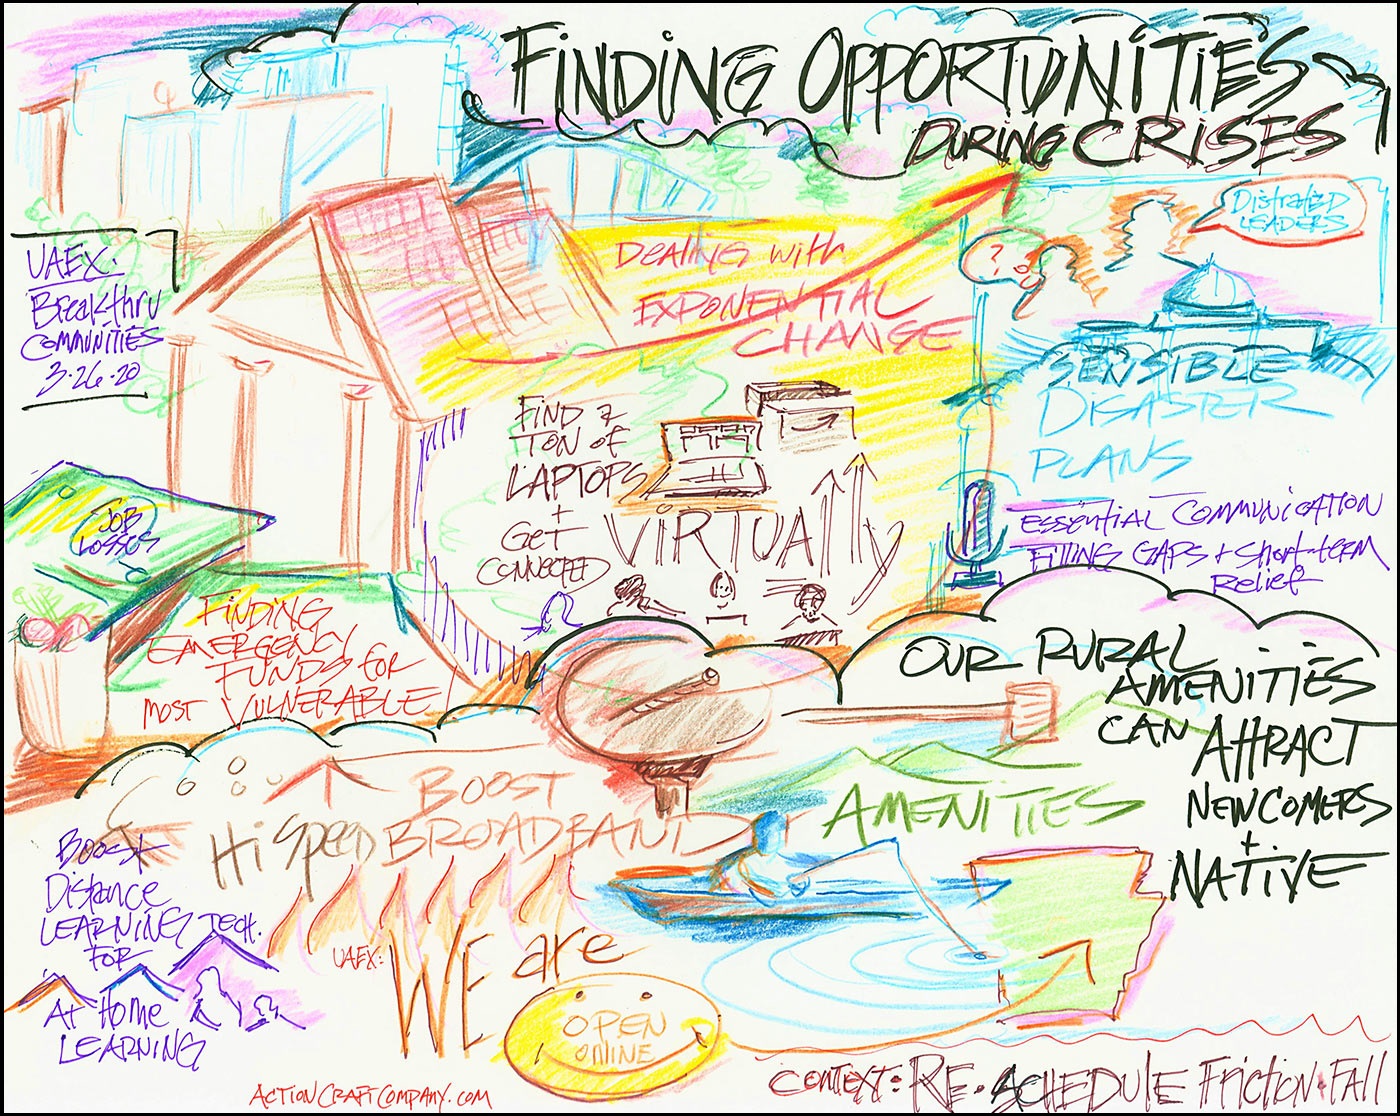 FINDING OPPORTUNITIES
DURING CRISES
UAEX:
Breakthru
COMMUNITIES
3.26.20
Dealing with
EXPONENTIAL
CHANGE
DISTRACTED
LEADERS
?
SENSIBLE
DISASTER
PLANS
ESSENTIAL COMMUNICATION
FILLING GAPS + Short-term
Relief
FIND a
TON of
LAPTOPS
+
GET
CONNECTED
VIRTUALLY
JOB
LOSSES
FINDING
EMERGENCY
FUNDS for
MOST VULNERABLE!
OUR RURAL
AMENITIES
CAN ATTRACT
NEWCOMERS
+
NATIVE
BOOST
Hi Speed BROADBAND
AMENITIES
Boost
Distance
LEARNING TECH.
FOR
AT Home
LEARNING
UAEX:
WE are
OPEN
ONLINE
ACTIONCRAFTCOMPANY.COM
CONTEXT: RE-SCHEDULE FRICTION·FALL